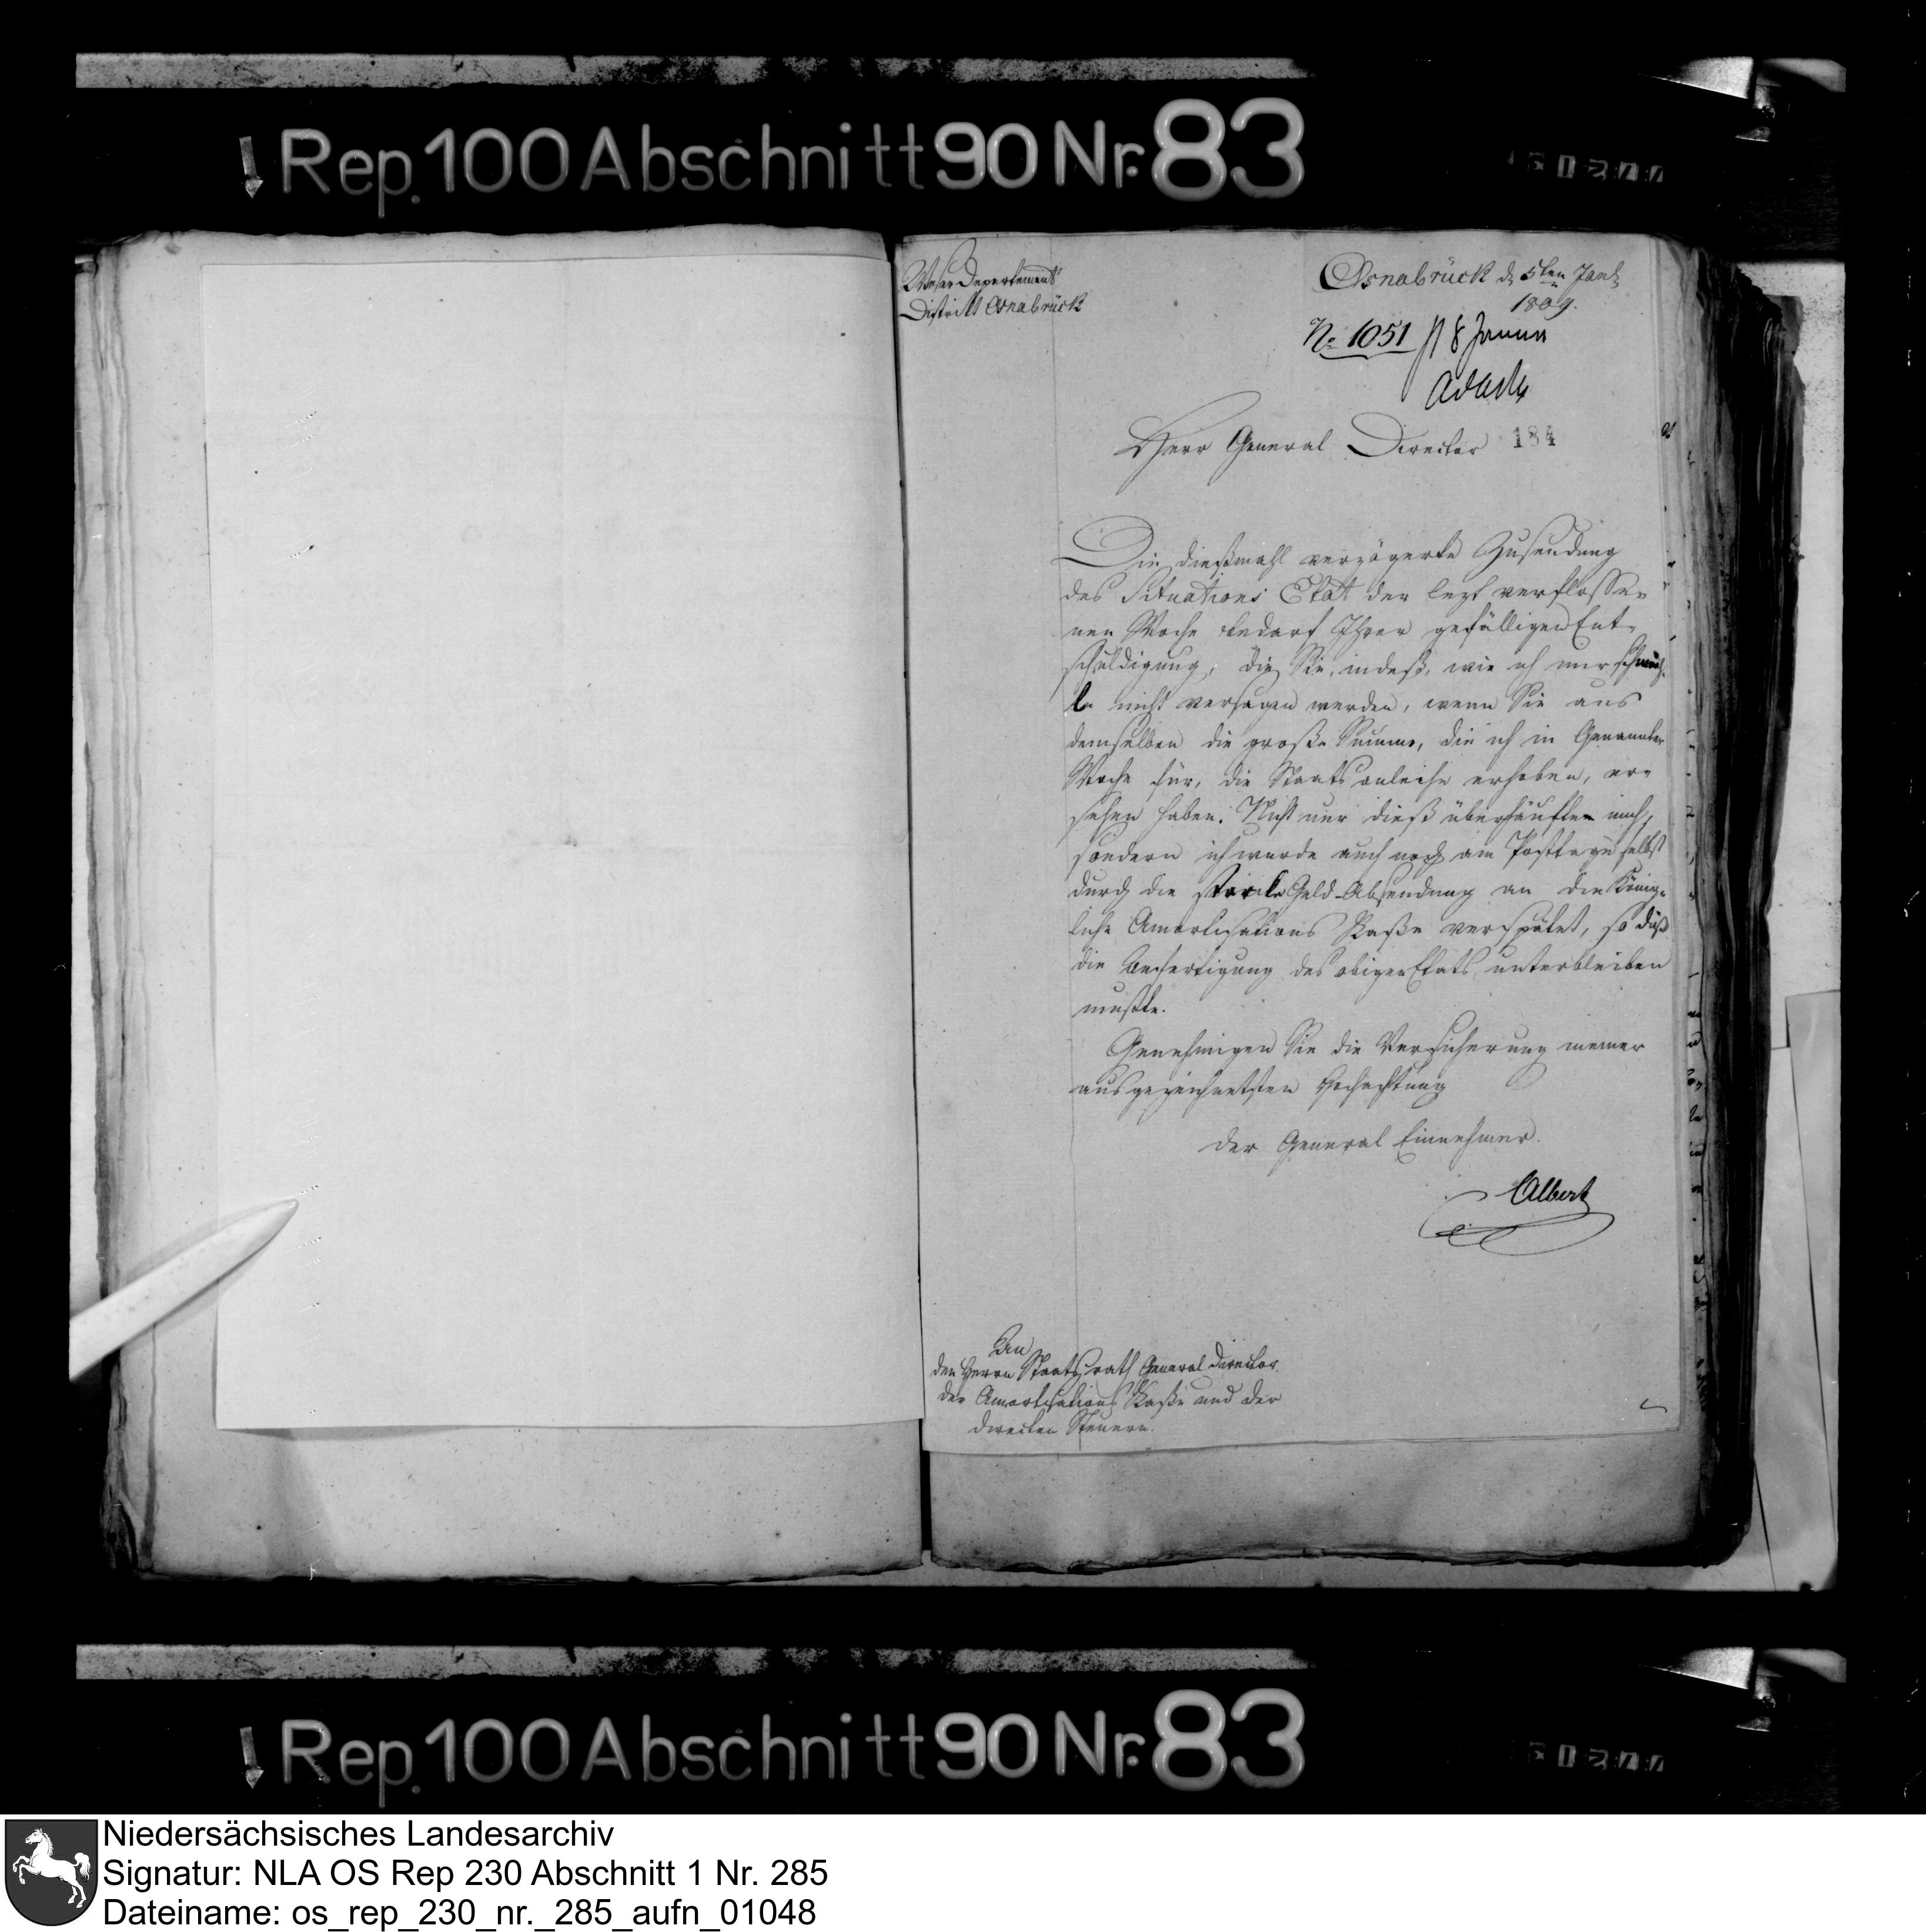 Rep. 100 Abschnitt 90 Nr. 83
Weser Departement
Distrikt Osnabrück
Osnabrück d 5ten Jan
1809.
No 1051 18 Janua
Herr General Director 184
Die dießmahl verzögerte Zusendung
des Situations Etat der lezt verflosse-
nen Woche bedarf Ihrer gefälligen Ent-
schuldigung, die Sie, indeß, wie ich mir schmeich-
le nicht versagen werden, wenn Sie aus
demselben die große Summe, die ich in Genannter
Woche für die Staatsanleihe erhoben, er-
sehen haben. Nicht nur dieß überhäufte mich,
sondern ich wurde auch noch am Posttage selbst
durch die starke Geld-Absendung an die König-
liche Amortisations Kaße verspätet, so daß
die Anfertigung des obigen Etats unterbleiben
mußte.
Genehmigen Sie die Versicherung meiner
ausgezeichnetsten Hochachtung
der General Einnehmer.
Albert
An
den Herrn Staatsrath General Director
der Amortisations Kaße und der
directen Steuern.
Rep. 100 Abschnitt 90 Nr. 83
Niedersächsisches Landesarchiv
Signatur: NLA OS Rep 230 Abschnitt 1 Nr. 285
Dateiname: os_rep_230_nr._285_aufn_01048